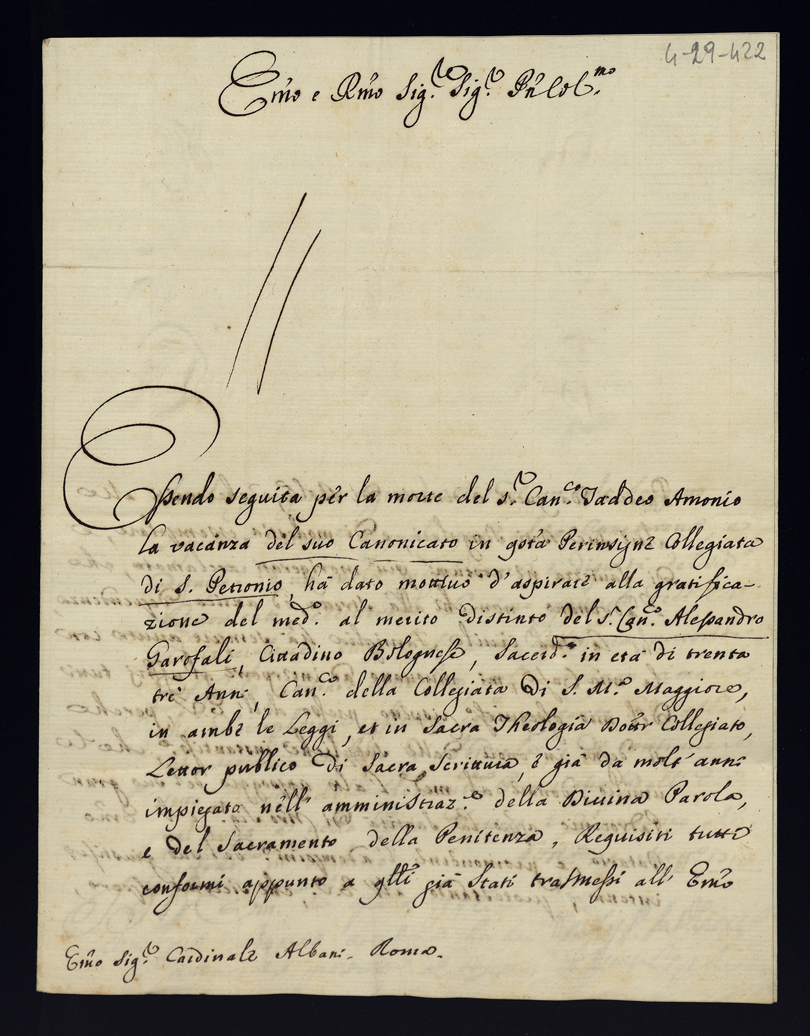 4-29-422
Em̃o e Rm̃o Sig.re Sig.re Pñ Col.mo
Essendo seguita per la morte del S.r Can.co Taddeo Amonio
la vacanza del suo Canonicato in qsta Perinsigne Collegiata
di S. Petronio, ha dato motivo d'aspirare alla gratifica-
zione del med.o al merito distinto del S.r Can.co Alessandro
Garofali, Cittadino Bolognese, Sacerd.e in età di trenta
trè Anni, Can.co della Collegiata di S. M.a Maggiore,
in ambe le Leggi, et in Sacra Theologia Dottr Collegiato,
Lettor publico di Sacra Scrittura, è già da molt' anni
impiegato nell' amministraz.e della Divina Parola,
e del Sacramento della Penitenza. Requisiti tutti
conformi appunto a qlli già stati trasmessi all' Em̃o
Em̃o Sig.r Cardinale Albani. Roma.